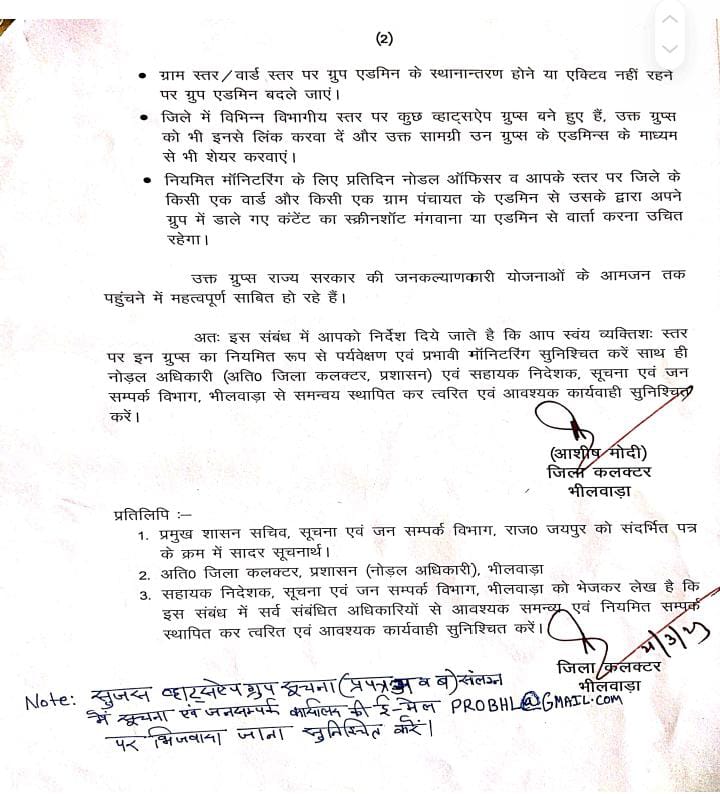 (2)
• ग्राम स्तर/वार्ड स्तर पर ग्रुप एडमिन के स्थानान्तरण होने या एक्टिव नहीं रहने
पर ग्रुप एडमिन बदले जाएं।
• जिले में विभिन्न विभागीय स्तर पर कुछ व्हाट्सऐप ग्रुप्स बने हुए हैं, उक्त ग्रुप्स
को भी इनसे लिंक करवा दें और उक्त सामग्री उन ग्रुप्स के एडमिन्स के माध्यम
से भी शेयर करवाएं।
• नियमित मॉनिटरिंग के लिए प्रतिदिन नोडल ऑफिसर व आपके स्तर पर जिले के
किसी एक वार्ड और किसी एक ग्राम पंचायत के एडमिन से उसके द्वारा अपने
ग्रुप में डाले गए कंटेंट का स्क्रीनशॉट मंगवाना या एडमिन से वार्ता करना उचित
रहेगा।
उक्त ग्रुप्स राज्य सरकार की जनकल्याणकारी योजनाओं के आमजन तक
पहुंचने में महत्वपूर्ण साबित हो रहे हैं।
अतः इस संबंध में आपको निर्देश दिये जाते है कि आप स्वंय व्यक्तिशः स्तर
पर इन ग्रुप्स का नियमित रूप से पर्यवेक्षण एवं प्रभावी मॉनिटरिंग सुनिश्चित करें साथ ही
नोड़ल अधिकारी (अति0 जिला कलक्टर, प्रशासन) एवं सहायक निदेशक, सूचना एवं जन
सम्पर्क विभाग, भीलवाड़ा से समन्वय स्थापित कर त्वरित एवं आवश्यक कार्यवाही सुनिश्चित
करें।
(आशीष मोदी)
जिला कलक्टर
भीलवाड़ा
प्रतिलिपि :–
1. प्रमुख शासन सचिव, सूचना एवं जन सम्पर्क विभाग, राज0 जयपुर को संदर्भित पत्र
के क्रम में सादर सूचनार्थ।
2. अति0 जिला कलक्टर, प्रशासन (नोडल अधिकारी), भीलवाड़ा
3. सहायक निदेशक, सूचना एवं जन सम्पर्क विभाग, भीलवाड़ा को भेजकर लेख है कि
इस संबंध में सर्व संबंधित अधिकारियों से आवश्यक समन्वय एवं नियमित सम्पर्क
स्थापित कर त्वरित एवं आवश्यक कार्यवाही सुनिश्चित करें।
जिला कलक्टर
भीलवाड़ा
Note: सुजस व्हाट्सएप ग्रुप सूचना (प्रपत्र अ व ब) संलग्न
में सूचना एवं जनसम्पर्क कार्यालय की ई-मेल PROBHL@GMAIL.COM
पर भिजवाया जाना सुनिश्चित करें।